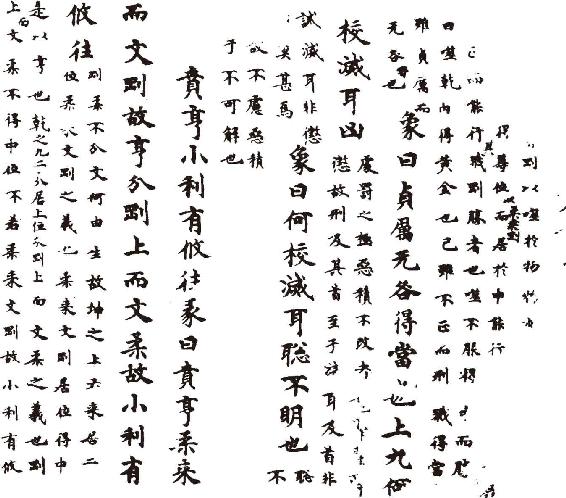 剛以噬於物
得尊位以柔乘剛而居於中能行
其能行戮剛勝者也噬不服得
曰噬乾肉得黃金也己雖不正而刑戮得當
雖貞厲而
无咎也 象曰貞厲无咎得當也上九何
校滅耳凶 處罰之極惡積不改者
懲故刑及其首至于 耳及首非
誡滅耳非懲
凶莫甚焉 象曰何校滅耳聦不明也 聦不
故不慮惡積
于不可解也
賁亨小利有攸往彖曰賁亨柔來
而文剛故亨分剛上而文柔故小利有
攸往 剛柔不分文何由生故坤之上六來居二
位柔來文剛之義也柔來文剛居位得中
是以亨也乾之九二分居上位分剛上而文柔之義也剛
上而文柔不得中位不若柔來文剛故小利有攸